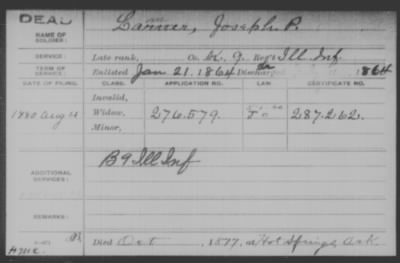 DEAD
NAME OF SOLDIER: Lanner, Joseph P.
SERVICE: Late rank, Co. K, 9 Reg't Ill. Inf
TERM OF SERVICE: Enlisted Jan 21, 1864 Discharged 1864
DATE OF FILING. CLASS. APPLICATION NO. LAW. CERTIFICATE NO.
Invalid,
1880 Aug Widow, 276.579. 287.262.
Minor,
ADDITIONAL SERVICES: B 9 Ill Inf
REMARKS:
Died Oct , 1877, at Hot Springs, Ark.